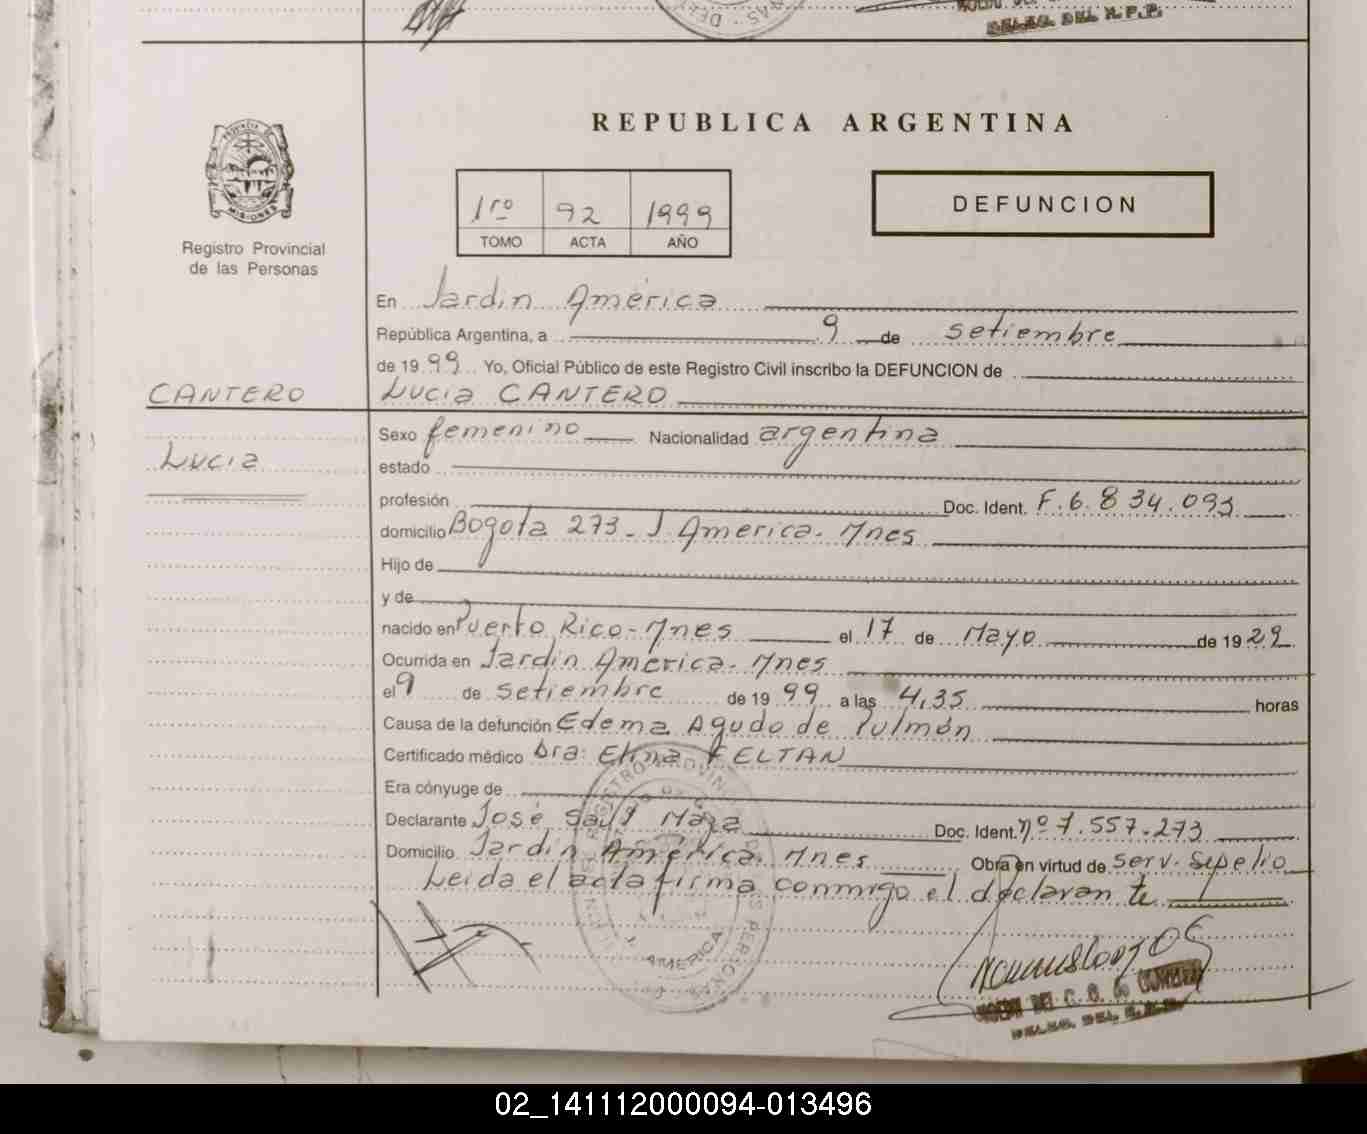 DELEG. DEL R.P.P.
REPUBLICA ARGENTINA
PROVINCIA DE
MISIONES
Registro Provincial
de las Personas
1ro 92 1999
TOMO ACTA AÑO
DEFUNCION
En Jardín América
República Argentina, a 9 de setiembre
de 19 99 Yo, Oficial Público de este Registro Civil inscribo la DEFUNCION de
CANTERO Lucia CANTERO
Sexo femenino Nacionalidad argentina
Lucia
estado
profesión Doc. Ident. F.6.834.093
domicilio Bogota 273 - J. America - Mnes
Hijo de
y de
nacido en Puerto Rico - Mnes el 17 de Mayo de 19 29
Ocurrida en Jardín América - Mnes
el 9 de setiembre de 19 99 a las 4,35 horas
Causa de la defunción Edema Agudo de Pulmón
Certificado médico Dra: Elina FELTAN
Era cónyuge de
Declarante José Saul Maza Doc. Ident. nº 7.557.273
Domicilio Jardín América. Mnes Obra en virtud de Serv. Sepelio
Leida el acta firma conmigo el declarante
J. AMERICA
DELEG. DEL R.P.P.
02_141112000094-013496